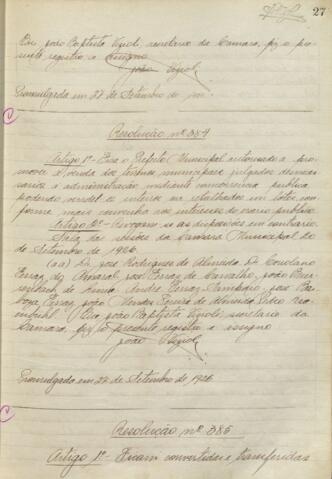 27
Eu, João Baptista Vizioli, secretario da Camara, fiz o pre-
sente registro e assigno
João Vizioli
Promulgada em 27 de Setembro de
Resolução nº 384
Artigo 1º - Fica o Prefeito Municipal autorisado a pro-
mover a venda dos terrenos municipaes julgados desneces-
sarios á administração mediante concorrencia publica
podendo vendel-os inteiros ou retalhados em lotes, con-
forme mais convenha aos interesses do erario publico.
Artigo 2º - Revogam-se as disposições em contrario.
Sala das sessões da Camara Municipal,
de Setembro de 1926.
(aa) Dr. José Rodrigues de Almeida, Dr. Coriolano
Ferraz do Amaral, José Ferraz de Carvalho, João
de Lima, André Ferraz Sampaio, José Bar-
boza Ferraz, João Mendes Pereira de Almeida, Pedro
Eu João Baptista Vizioli, secretario da
Camara, fiz o presente registro e assigno
João Vizioli
Promulgada em 27 de Setembro de 1926
Resolução nº 385
Artigo 1º - Ficam convertidas e transferidas